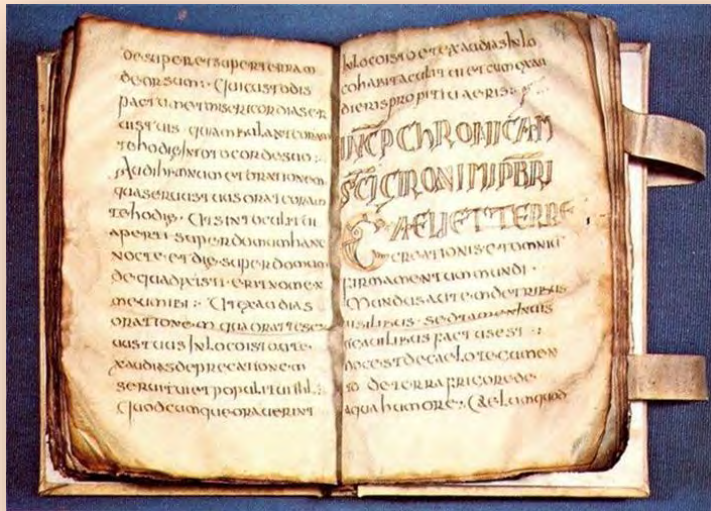 desuper et super terram
deorsum : Qui custodis
pactum et misericordias ser
uis tuis qui ambulant coram
te hodie in toto corde suo :
Audi hymnum et orationem
qua seruus tuus orat coram
te hodie : Ut sint oculi tui
aperti super domum hanc
nocte et die super domum
de qua dixisti erit nomen
meum ibi : Ut exaudias
oratione m qua orat te ser
uus tuus in loco isto ut e
xaudias deprecationem
serui tui et populi tui
Quodcumque orauerint
in loco isto et exaudias in lo
co habitaculi tui et cum exau
dieris propitiaeris :
INCP CHRONICAM
SCI CIRONIMI PBRI
CAELI ET TERRE
CREATIONIS et omniu
firmamentum mundi ·
Mundus autem de tribus
uisibilibus sed tamen inuis
factus est :
hoc est de caelo tecumen
to de terra fricore de
aqua humore : Caelum quod